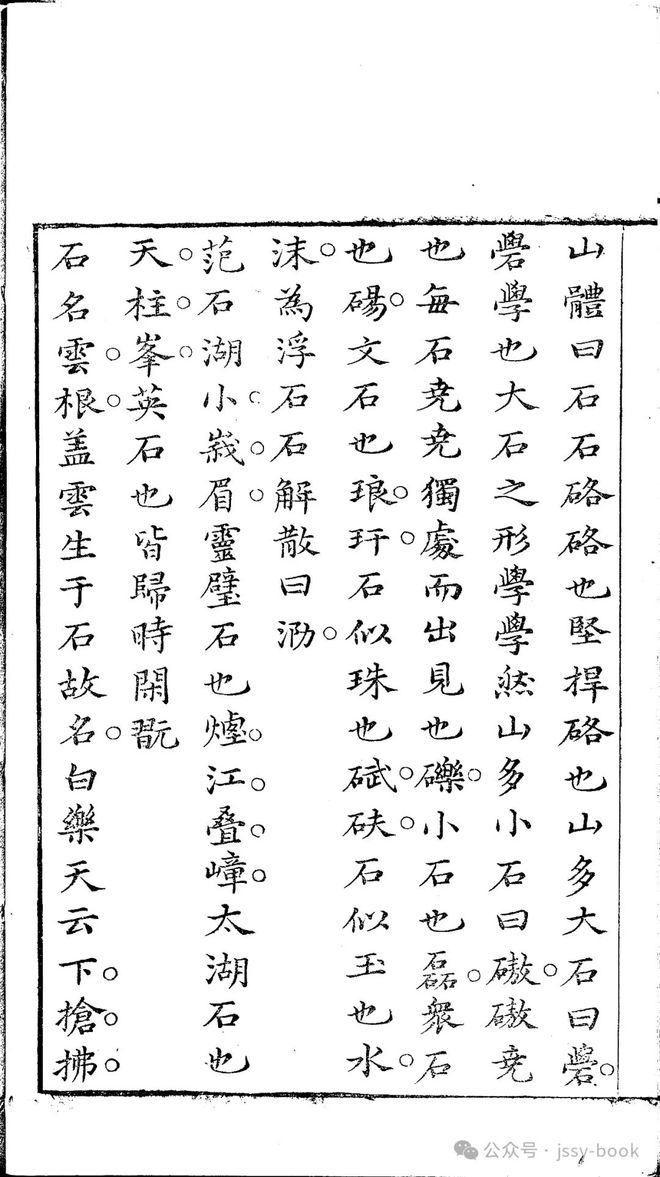 山體曰石石硌硌也堅捍硌也山多大石曰礐
礐學也大石之形學學然山多小石曰磝磝堯
也每石堯堯獨處而出見也礫小石也磊衆石
也碭文石也琅玕石似珠也碔砆石似玉也水
沫為浮石石解散曰泐
范石湖小峩眉靈璧石也煙江叠嶂太湖石也
天柱峯英石也皆歸時閑翫
石名雲根盖雲生于石故名白樂天云下搶拂
公众号·jssy-book